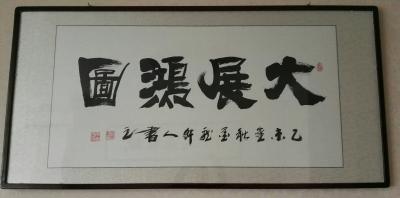 大展鴻圖
乙未金秋墨龍軒人書